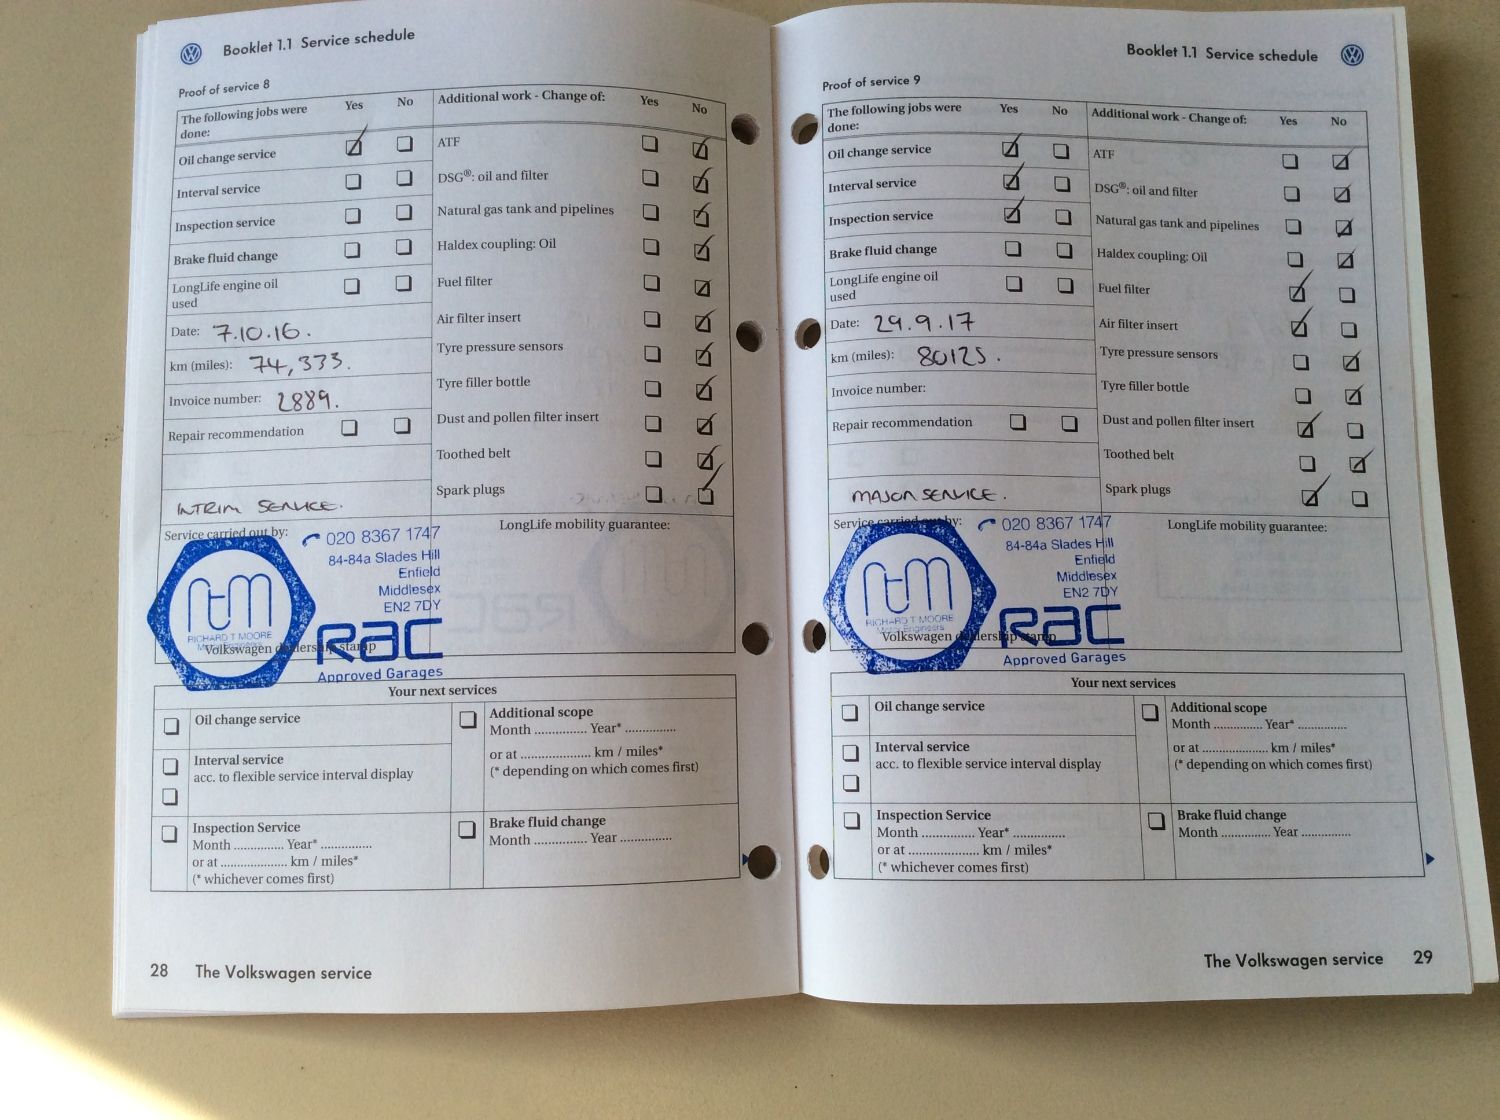 Booklet 1.1 Service schedule
Proof of service 8
The following jobs were done: Yes No
Additional work - Change of: Yes No
Oil change service
Interval service
Inspection service
Brake fluid change
LongLife engine oil used
Date: 7.10.16.
km (miles): 74,333.
Invoice number: 2889.
Repair recommendation
INTRIM SERVICE.
ATF
DSG®: oil and filter
Natural gas tank and pipelines
Haldex coupling: Oil
Fuel filter
Air filter insert
Tyre pressure sensors
Tyre filler bottle
Dust and pollen filter insert
Toothed belt
Spark plugs
Service carried out by:
LongLife mobility guarantee:
020 8367 1747
84-84a Slades Hill
Enfield
Middlesex
EN2 7DY
rtm
RICHARD T MOORE
Motor Engineers
Volkswagen dealership stamp
RAC
Approved Garages
Your next services
Oil change service
Interval service
acc. to flexible service interval display
Inspection Service
Month .............. Year* ..............
or at .................... km / miles*
(* whichever comes first)
Additional scope
Month .............. Year* ..............
or at .................... km / miles*
(* depending on which comes first)
Brake fluid change
Month .............. Year ..............
28 The Volkswagen service
Booklet 1.1 Service schedule
Proof of service 9
The following jobs were done: Yes No
Additional work - Change of: Yes No
Oil change service
Interval service
Inspection service
Brake fluid change
LongLife engine oil used
Date: 29.9.17
km (miles): 80125.
Invoice number:
Repair recommendation
MAJOR SERVICE.
ATF
DSG®: oil and filter
Natural gas tank and pipelines
Haldex coupling: Oil
Fuel filter
Air filter insert
Tyre pressure sensors
Tyre filler bottle
Dust and pollen filter insert
Toothed belt
Spark plugs
Service carried out by:
LongLife mobility guarantee:
020 8367 1747
84-84a Slades Hill
Enfield
Middlesex
EN2 7DY
rtm
RICHARD T MOORE
Motor Engineers
Volkswagen dealership stamp
RAC
Approved Garages
Your next services
Oil change service
Interval service
acc. to flexible service interval display
Inspection Service
Month .............. Year* ..............
or at .................... km / miles*
(* whichever comes first)
Additional scope
Month .............. Year* ..............
or at .................... km / miles*
(* depending on which comes first)
Brake fluid change
Month .............. Year ..............
The Volkswagen service 29